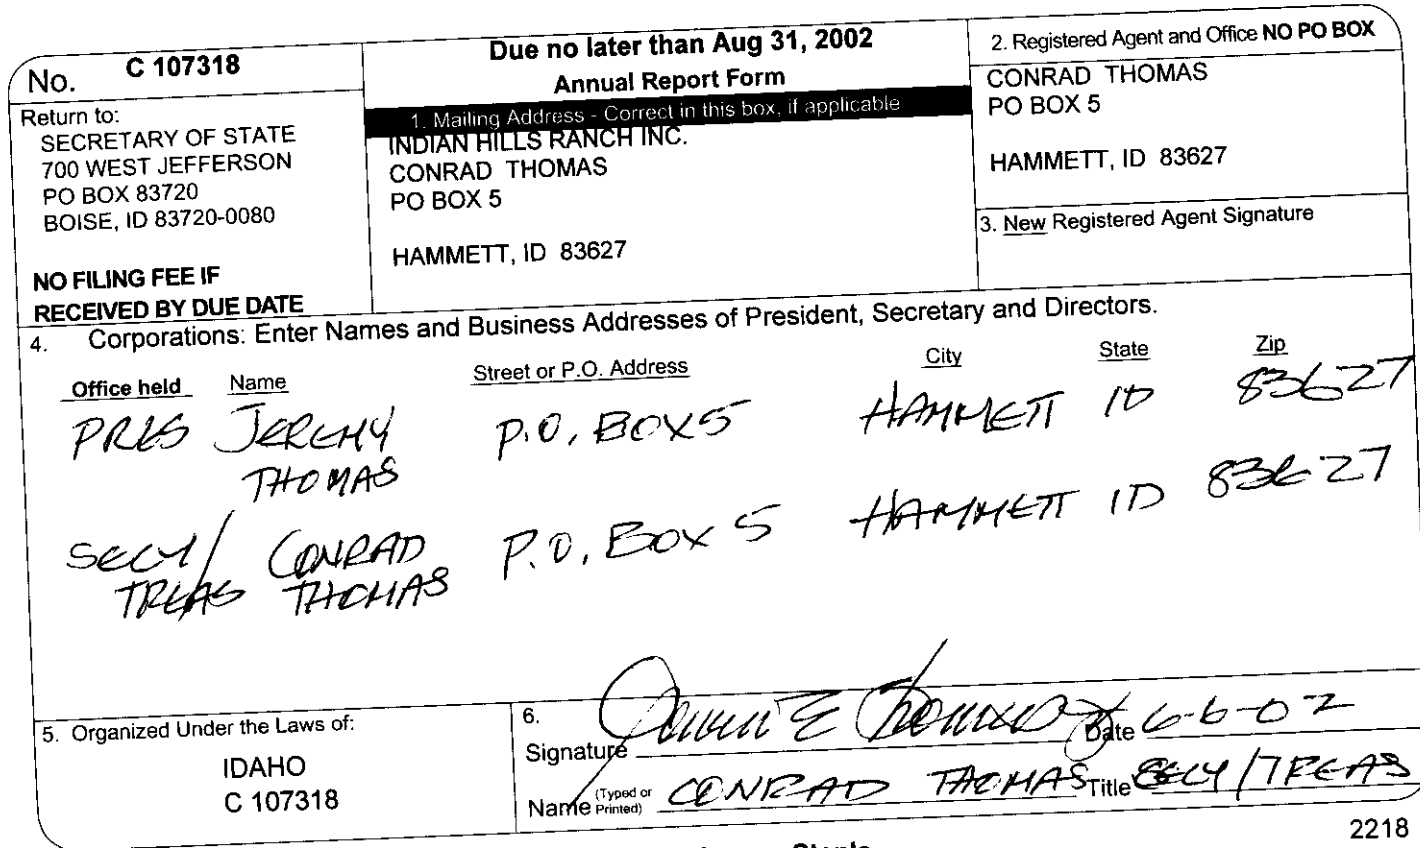 No. C 107318
Return to:
SECRETARY OF STATE
700 WEST JEFFERSON
PO BOX 83720
BOISE, ID 83720-0080
NO FILING FEE IF
RECEIVED BY DUE DATE
Due no later than Aug 31, 2002
Annual Report Form
1. Mailing Address - Correct in this box, if applicable
INDIAN HILLS RANCH INC.
CONRAD THOMAS
PO BOX 5
HAMMETT, ID 83627
2. Registered Agent and Office NO PO BOX
CONRAD THOMAS
PO BOX 5
HAMMETT, ID 83627
3. New Registered Agent Signature
4. Corporations: Enter Names and Business Addresses of President, Secretary and Directors.
Office held Name Street or P.O. Address City State Zip
PRES JEREMY P.O. BOX 5 HAMMETT ID 83627
THOMAS
SECY/ CONRAD P.O. BOX 5 HAMMETT ID 83627
TREAS THOMAS
5. Organized Under the Laws of:
IDAHO
C 107318
6.
Signature Date 6-6-02
Name (Typed or Printed) CONRAD THOMAS Title SECY/TREAS
2218